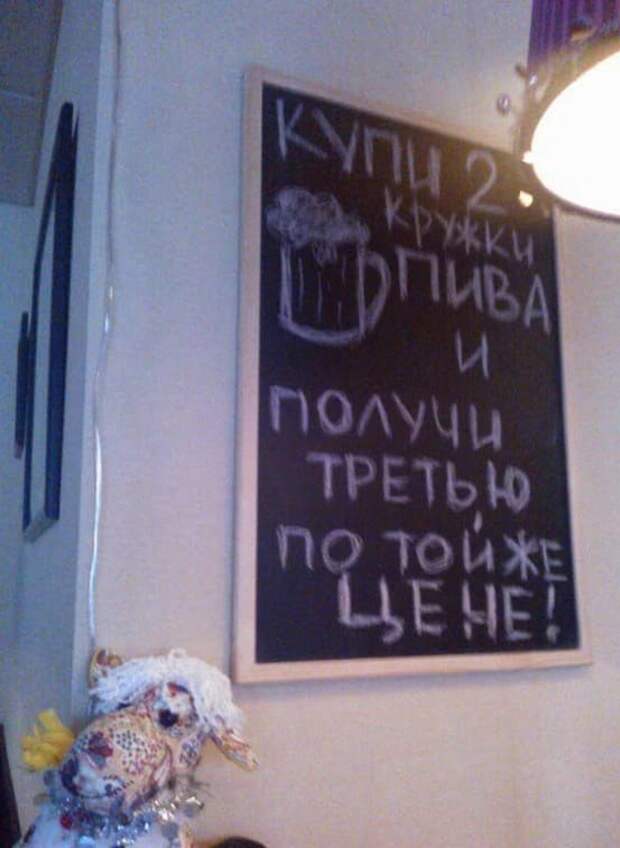 КУПИ 2
КРУЖКИ
ПИВА
И
ПОЛУЧИ
ТРЕТЬЮ
ПО ТОЙ ЖЕ
ЦЕНЕ!